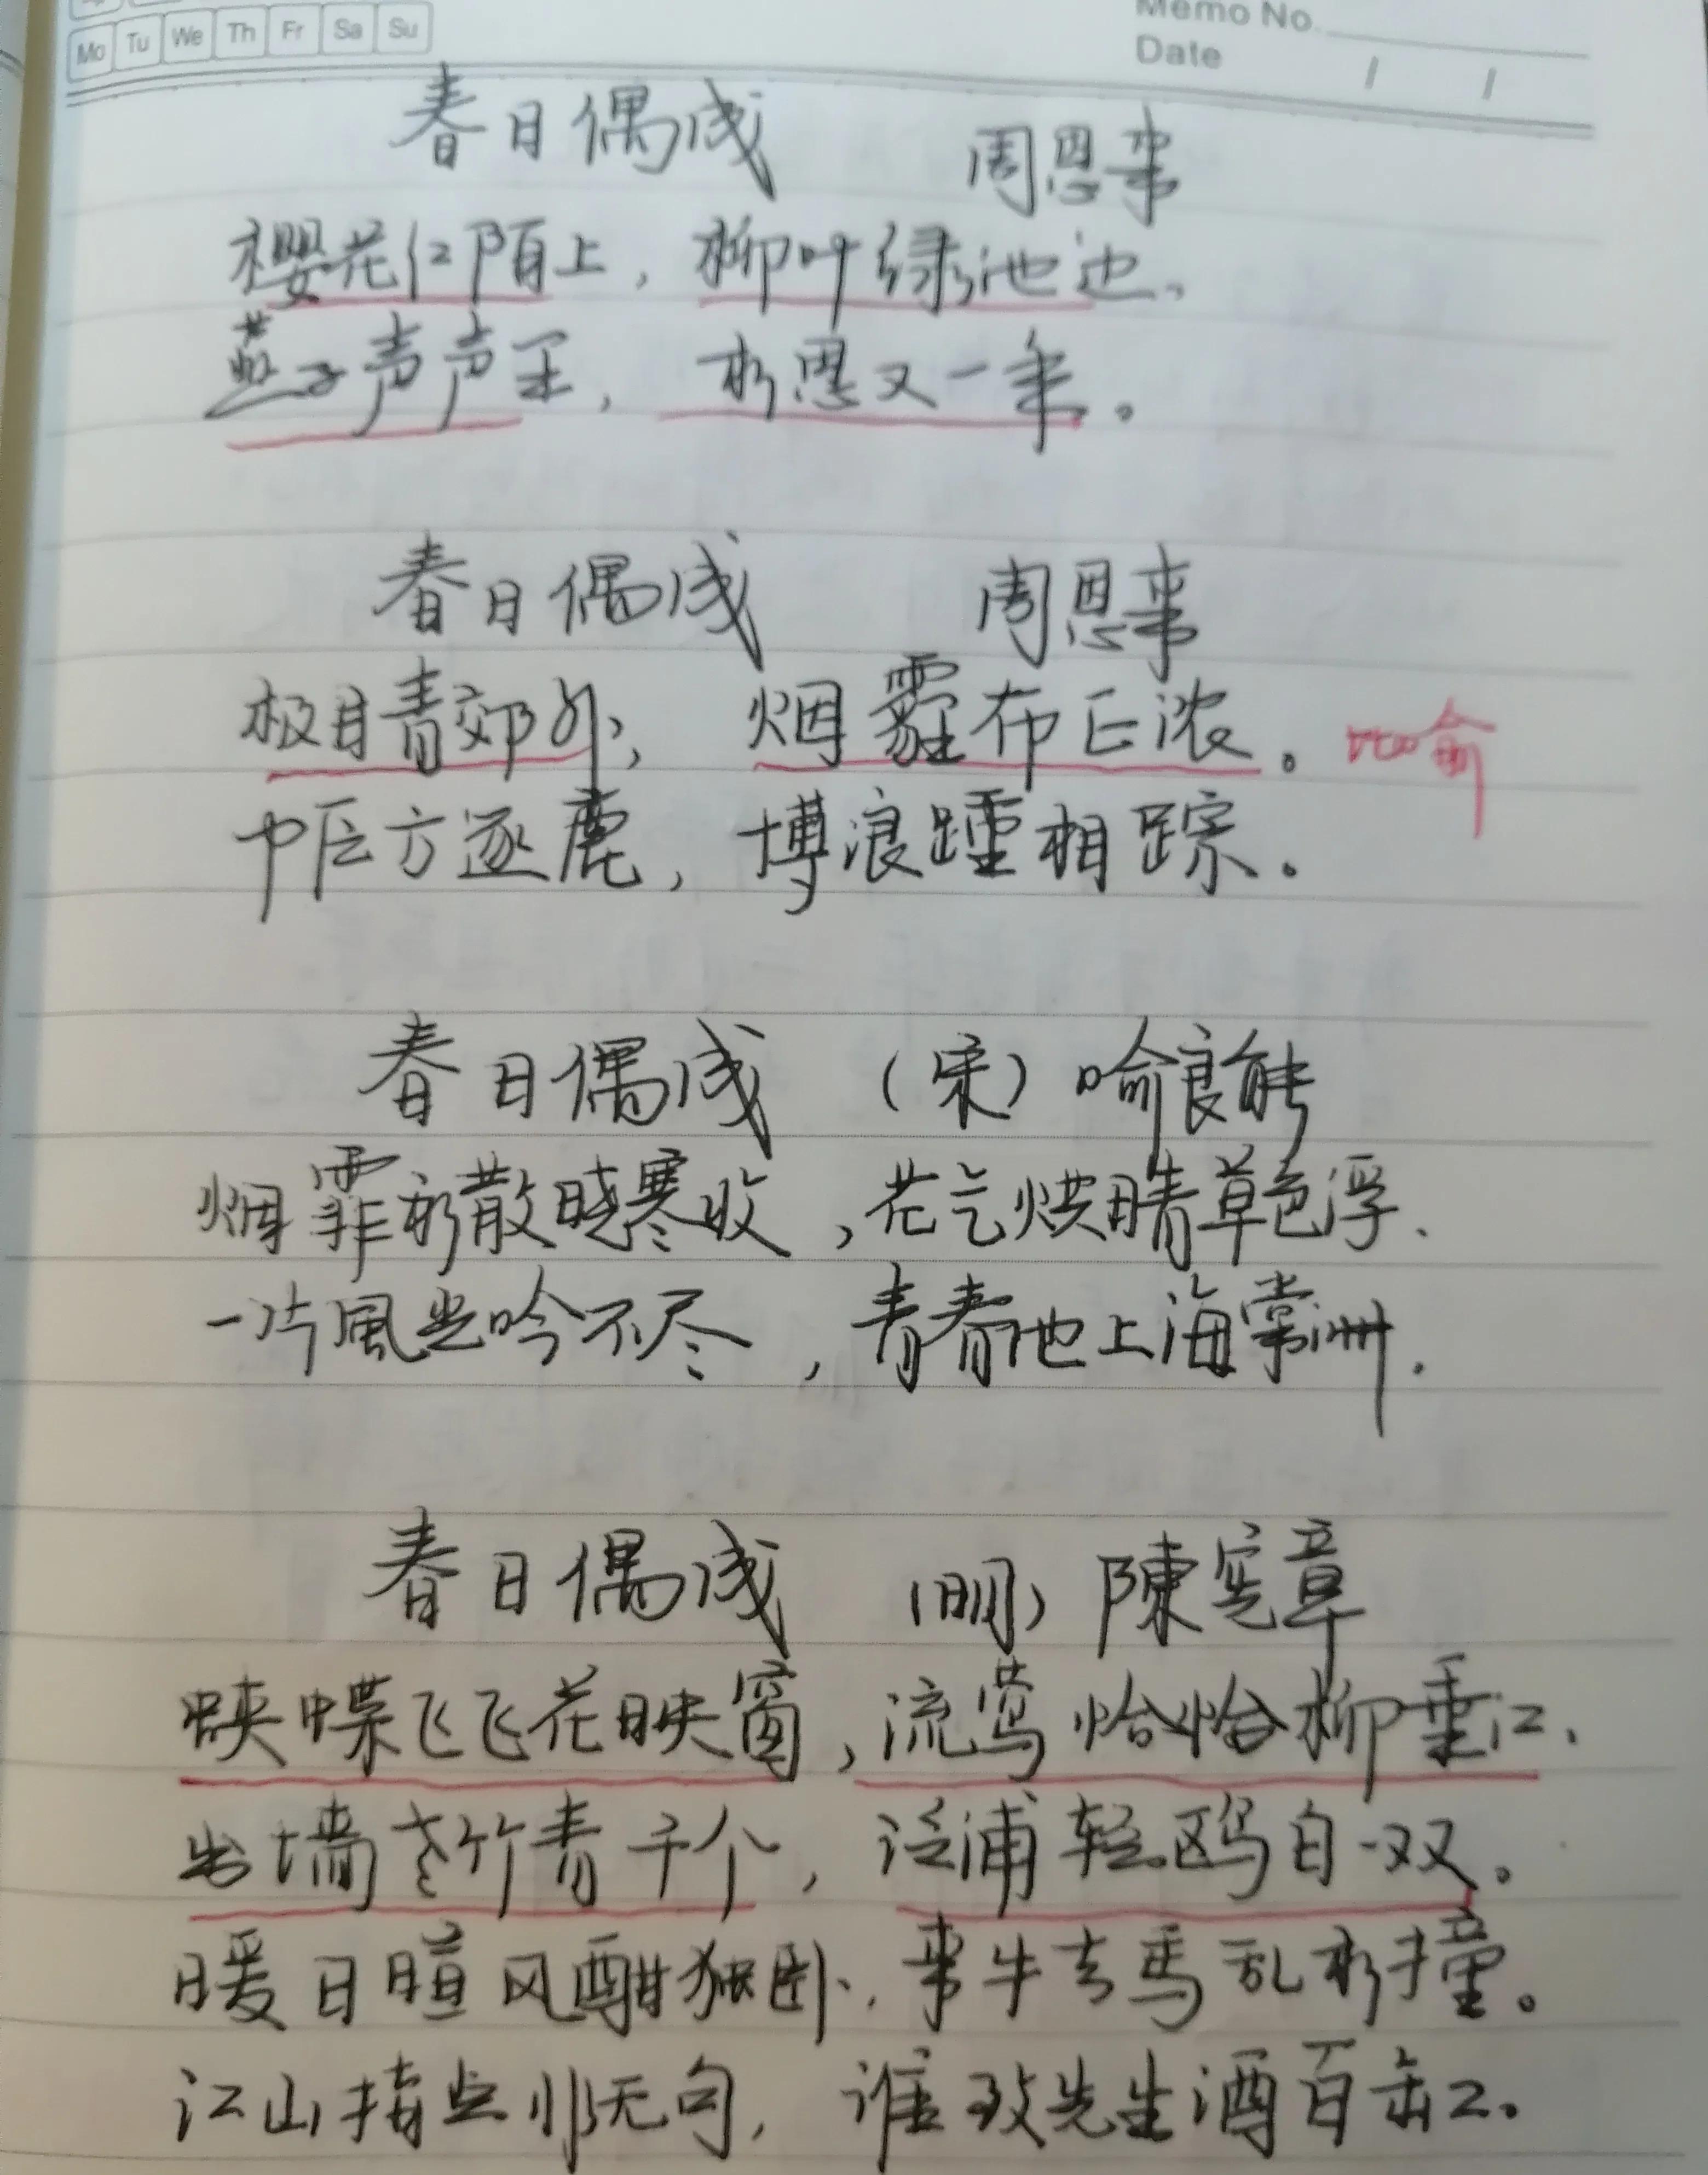 Mo Tu We Th Fr Sa Su
Memo No.
Date / /
春日偶成 周恩来
樱花红陌上，柳叶绿池边。
燕子声声里，相思又一年。
春日偶成 周恩来
极目青郊外，烟霾布正浓。比喻
中原方逐鹿，博浪踵相踪。
春日偶成 （宋）喻良能
烟霏初散晓寒收，花气烘晴草色浮。
一片風光吟不尽，青春池上海棠洲.
春日偶成 （明）陳宪章
蛱蝶飞飞花映窗，流莺恰恰柳垂江.
出墙老竹青千个，泛浦轻鸥白一双。
暖日暄风酣独卧，来牛去马乱相撞。
江山指点非无句，谁致先生酒百缸。